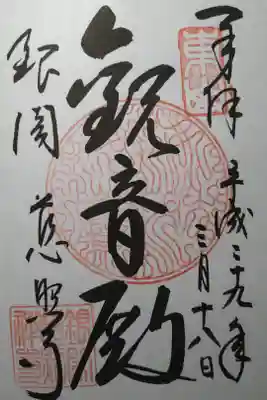 奉拝
平成二十九年
三月十八日
観音殿
銀閣 慈照寺